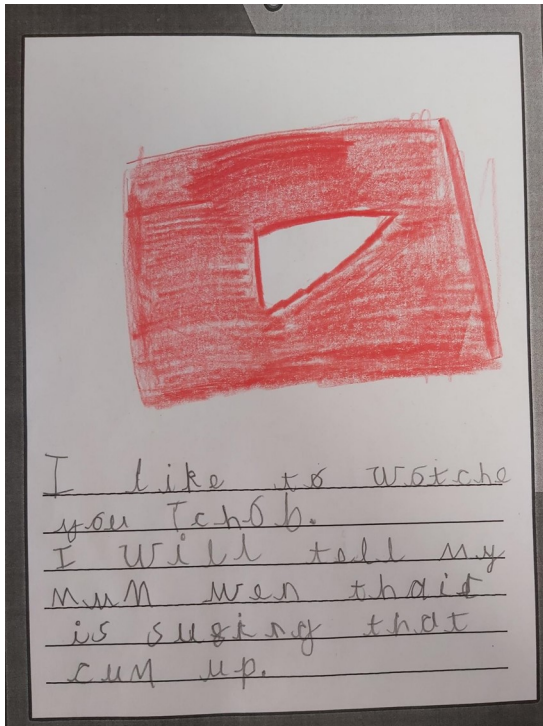 I like to wotche
you Tchob.
I will tell my
mum wen thair
is suging that
cum up.